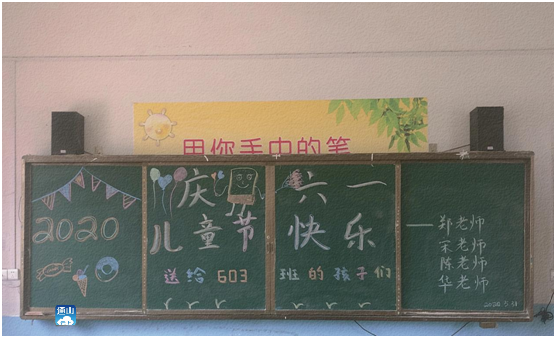 用你手中的笔
庆 六一
2020
儿童节 快乐
送给603 班的孩子们
——郑老师
宋老师
陈老师
华老师